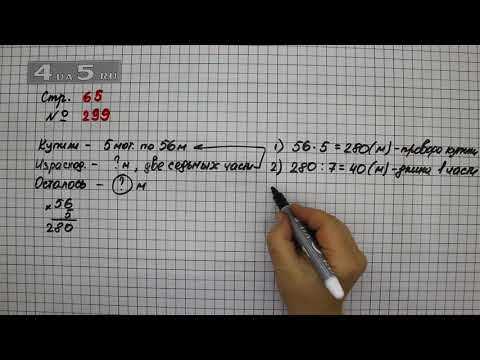 4DA5.RU
Стр. 65
№ 299
Купили - 5 мот. по 56 м
Израсход. - ? м, две седьмых части
Осталось - ? м
× 56
5
280
1) 56 · 5 = 280 (м) - провода купили
2) 280 : 7 = 40 (м) - длина 1 части